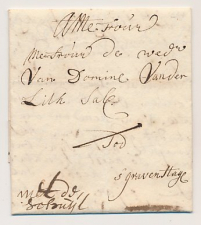 Mevrouw
Mevrouw de wedr
Van Domine Vander
Lith Sal
Tot
s'gravenHage
met de
schuijt